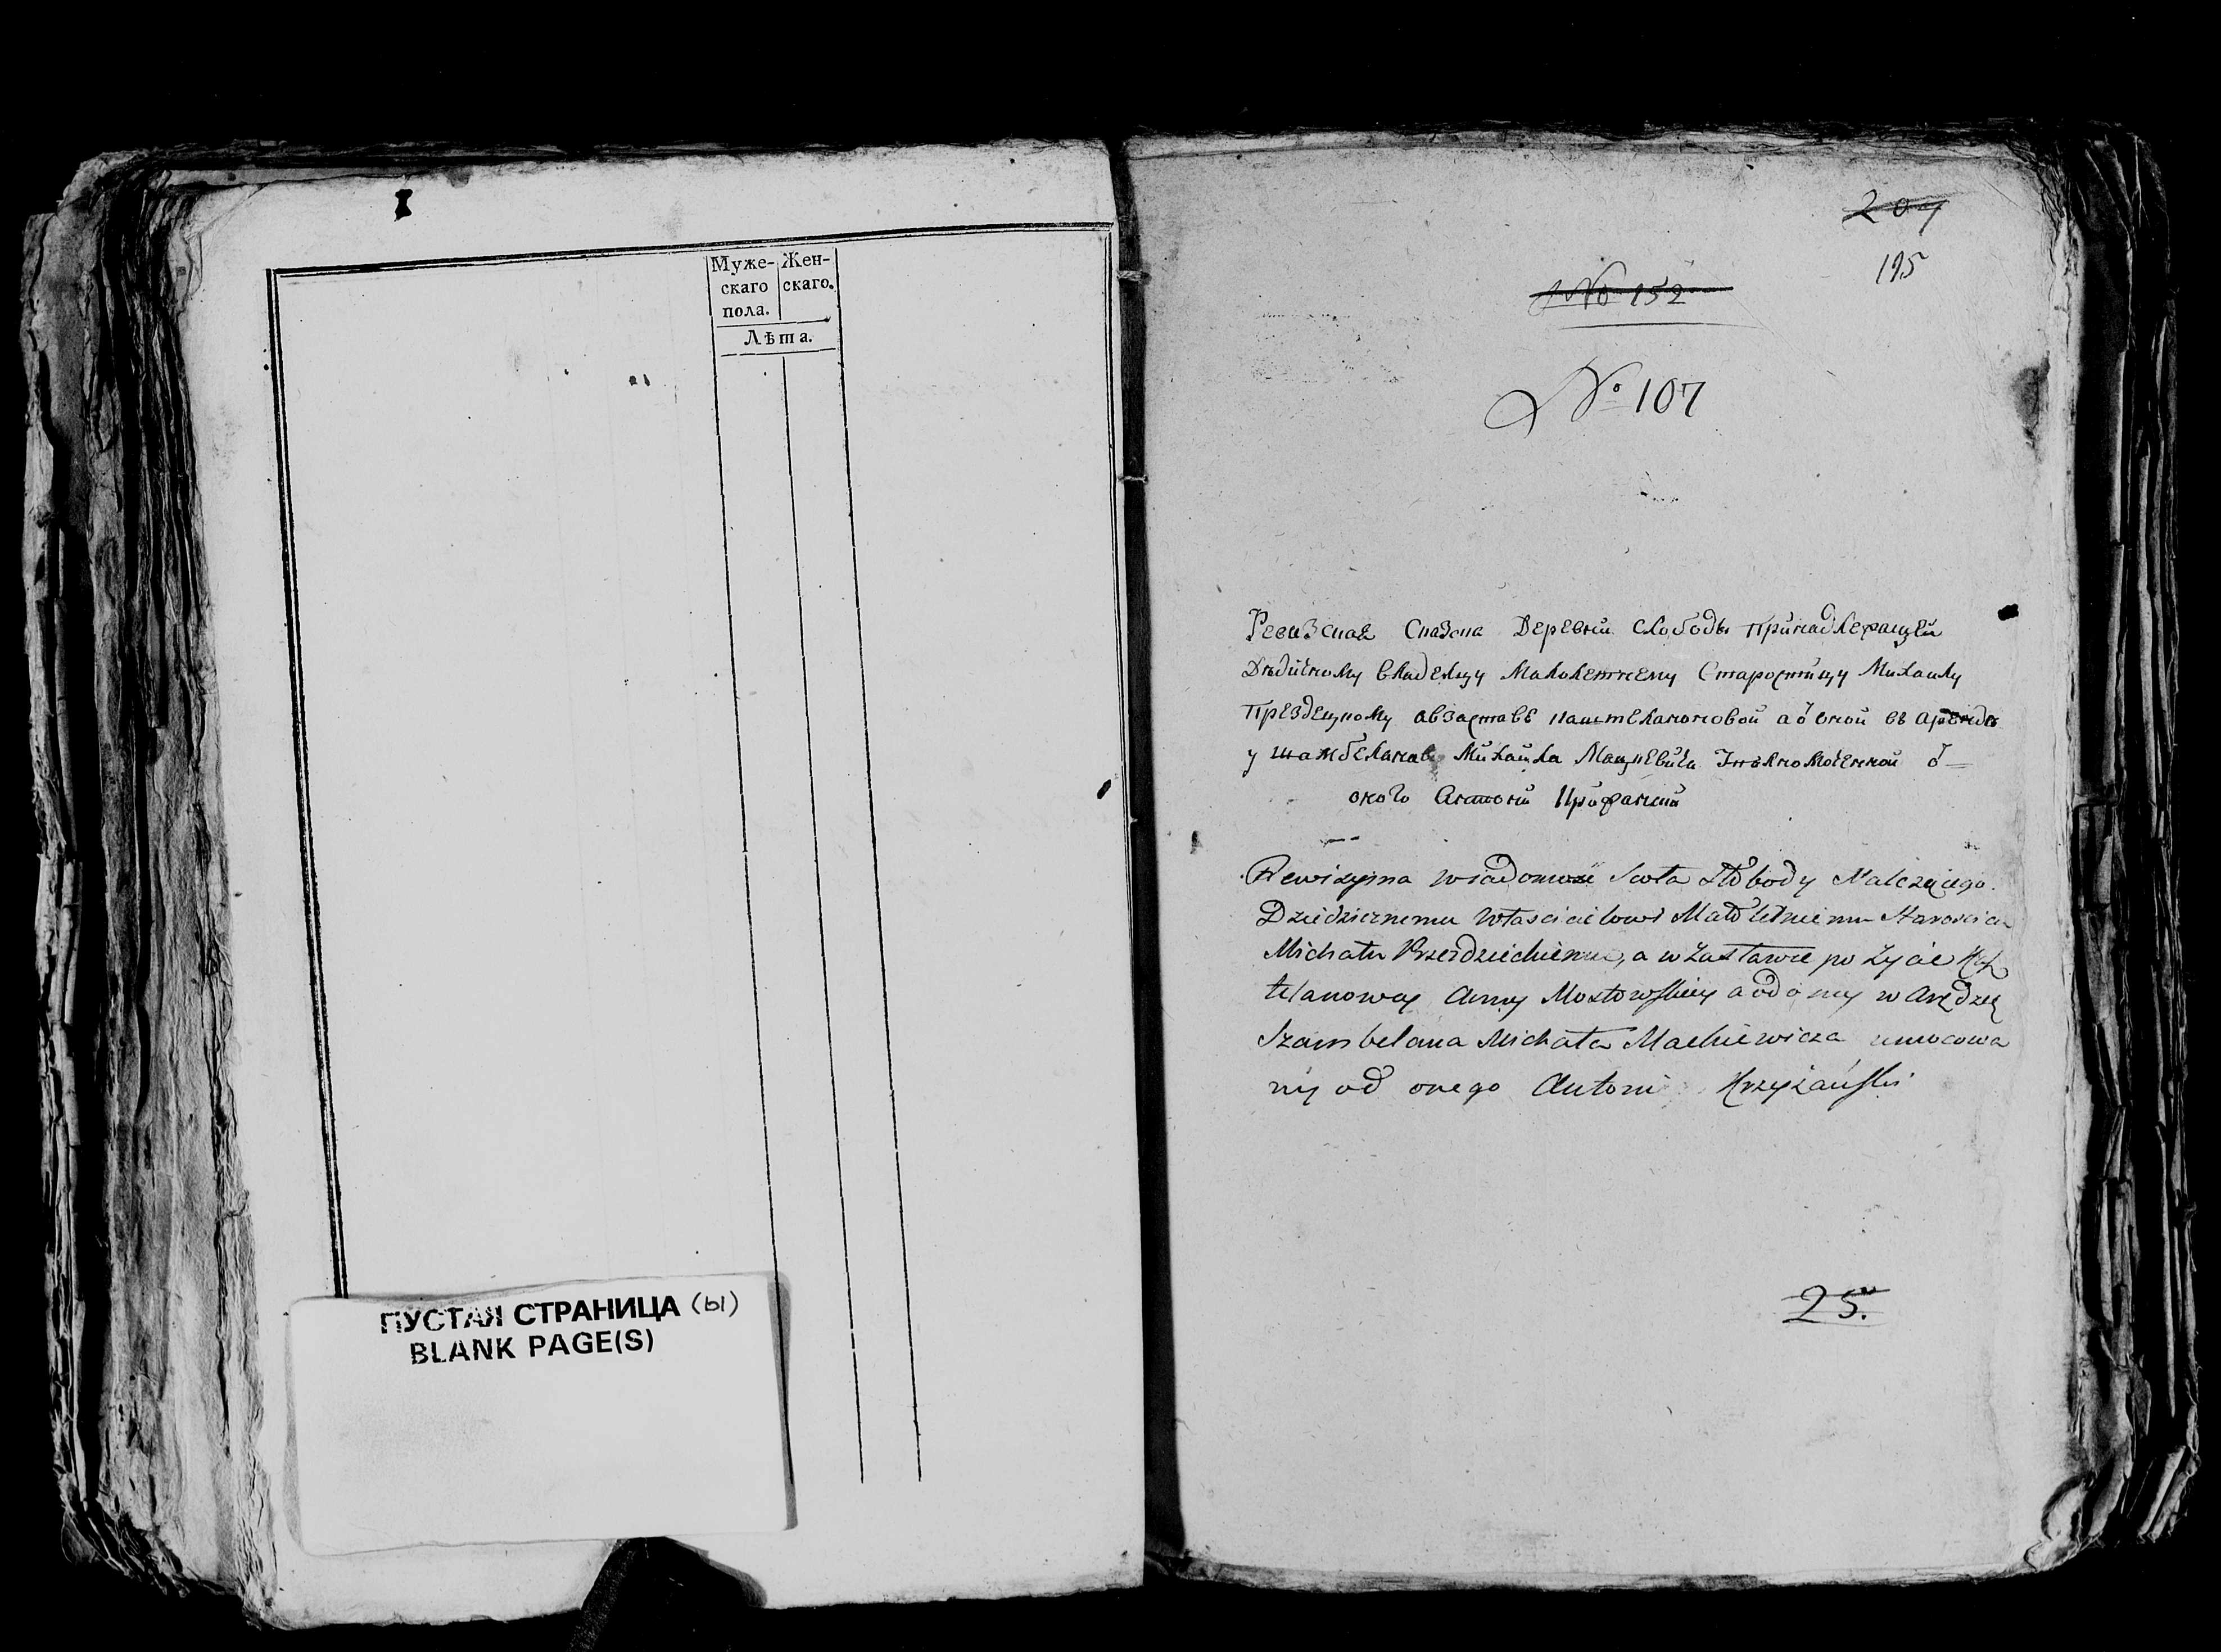 Муже-
скаго
пола.
Жен-
скаго.
Лѣта.
ПУСТАЯ СТРАНИЦА (ы)
BLANK PAGE(S)
207
195
No 152
No 107
Ревизская Сказка Деревни Слободы принадлежащей
Дѣдичному владельцу Малолетнему Старостицу Михаилу
Прездецкому авзаставе каштеляновой аӧ оной въ арендѣ
у шамбеляна Михаила Мацкевича ӧ
оного Антоній Крижанскій
Rewizyina wiadomość Sioła Słobody Należącego
Dziedzicznemu Właścicielowi Małoletniemu Starościcu
Michału Przezdzieckiemu, a w Zastawie po życie Kasz
telanowey Anny Mostowskiey a od oney w Arędzie
Szambelana Michała Mackiewicza umocowa
ny od onego Antoni Krzyżański
25.